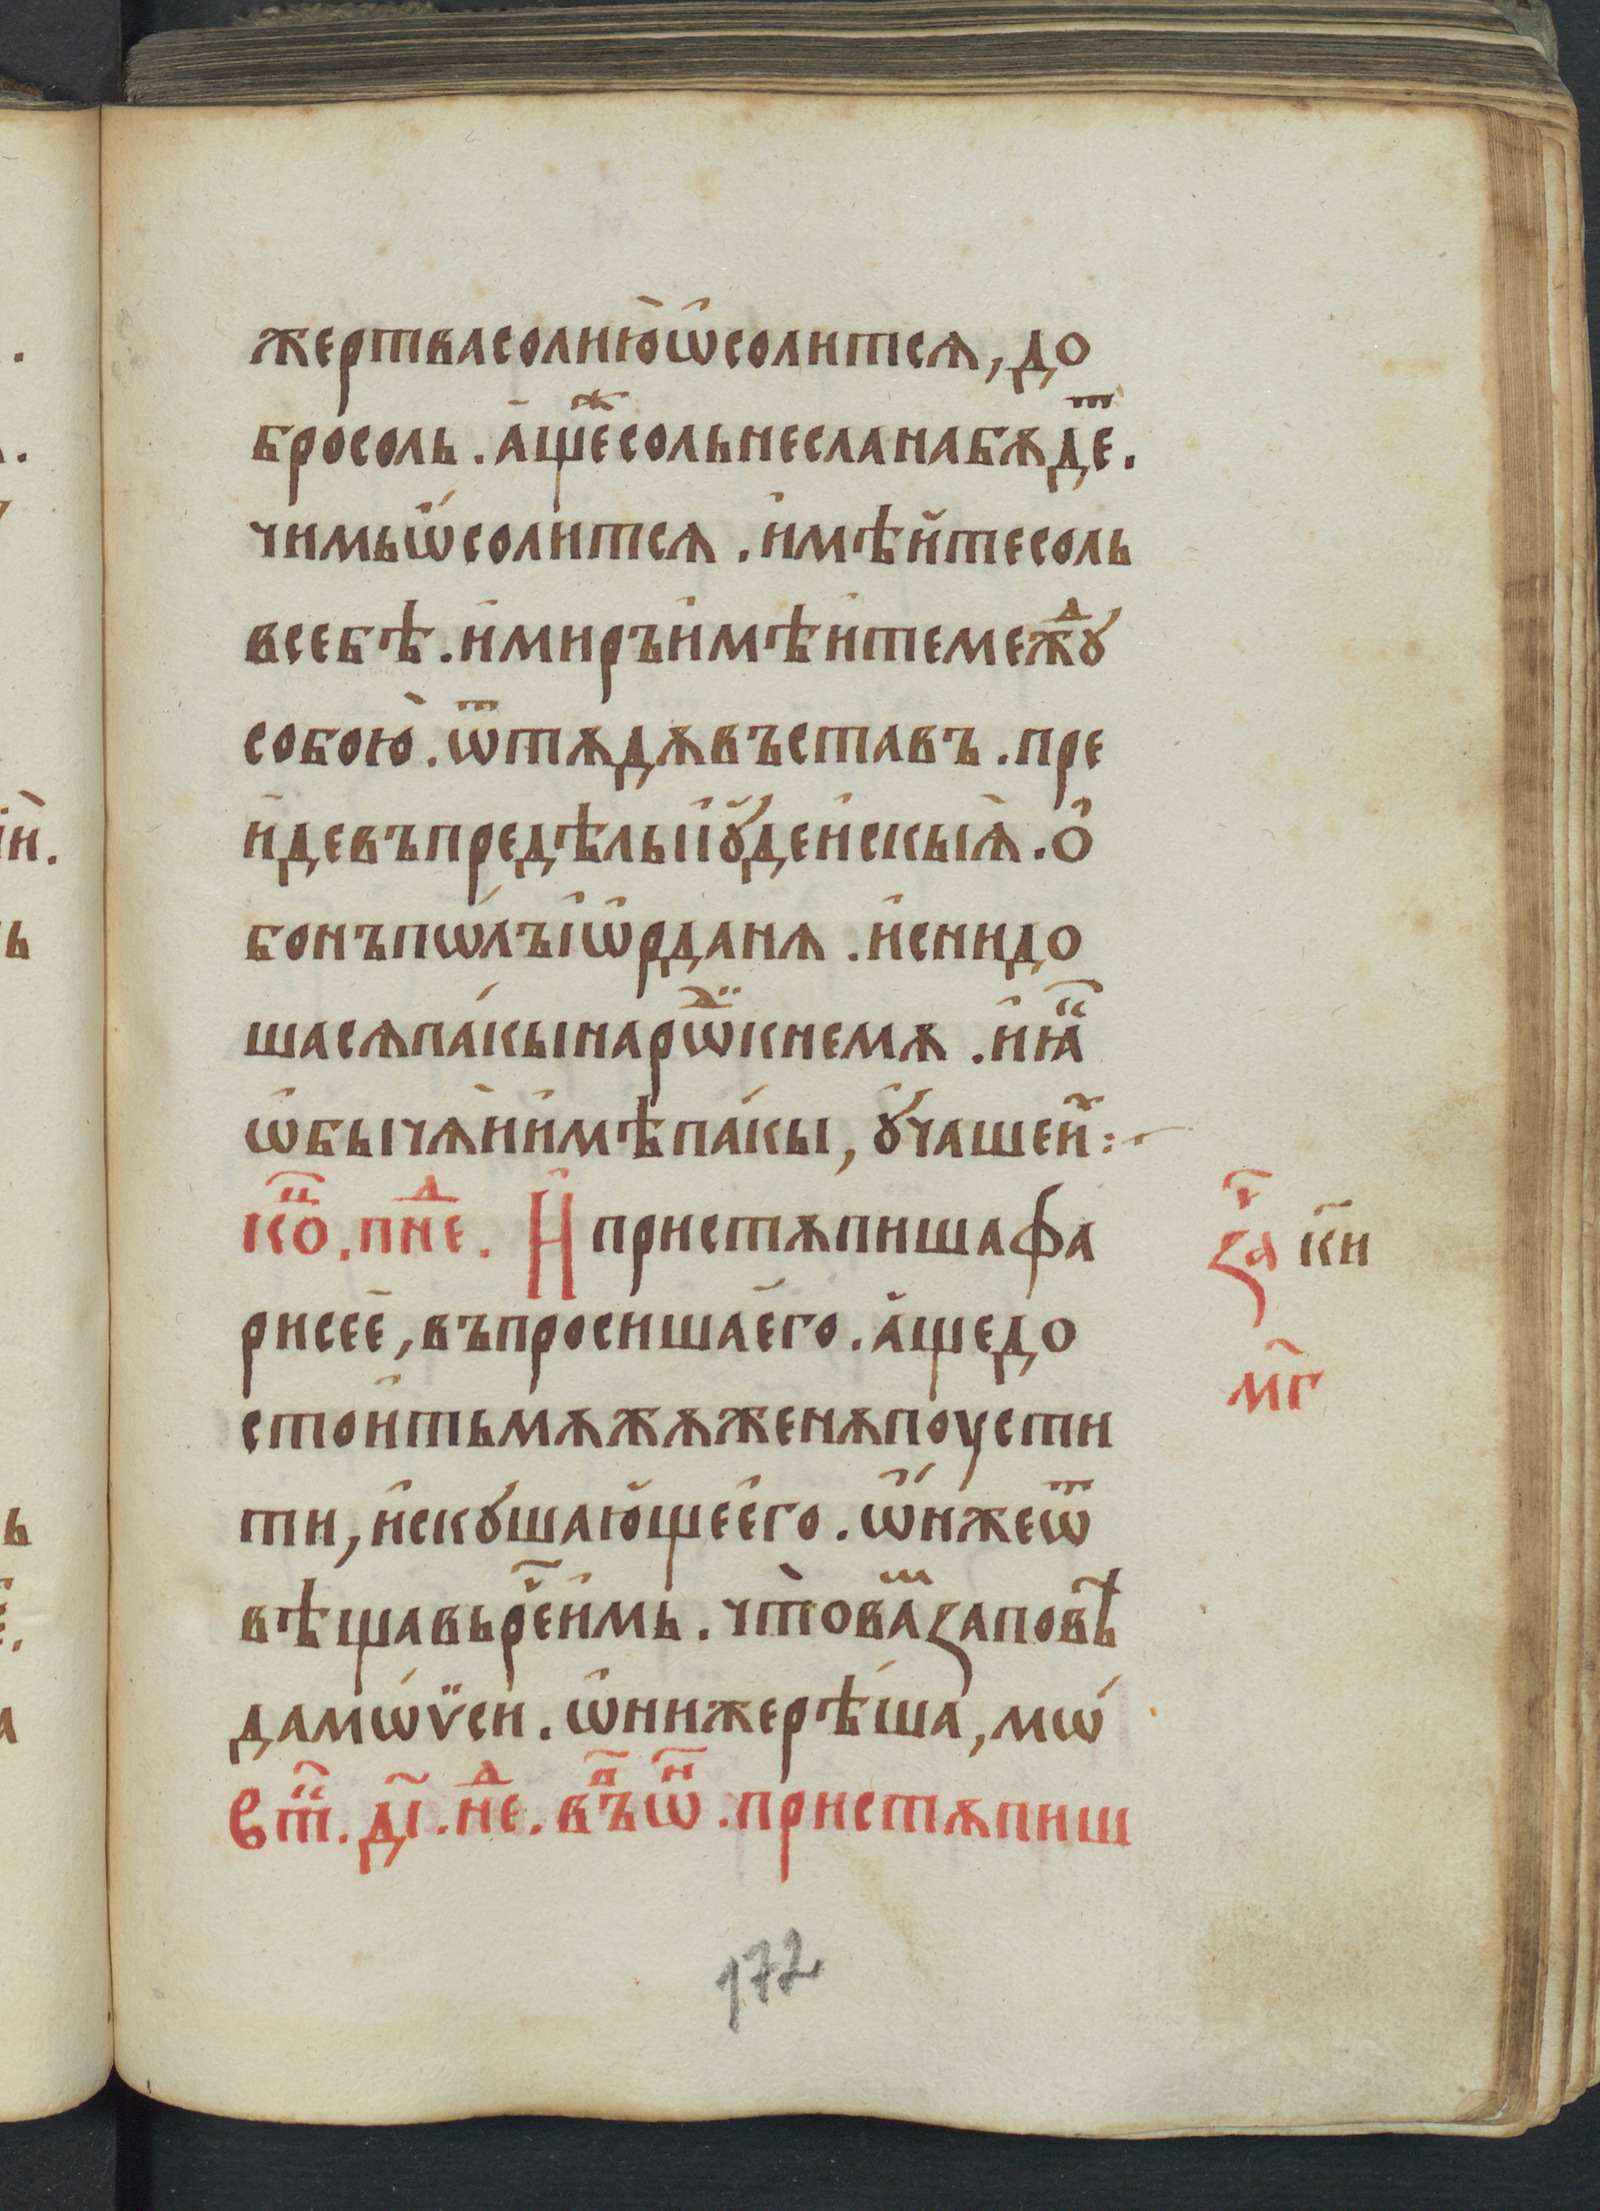 жертвасолию̀ѡ̑солитсѧ, до
бросоль. а҆щеⷤсольнесланабѫдеⷮ.
чимьѡ҆́солитсѧ. и҆мѣи҆тесоль
всебѣ. и҆миръи҆мѣи҆темежⷣꙋ
собою̀. ѿтѫдѫвъставъ. пре
и҆девъпредѣлыі҆ꙋ҆́деи҆скыѧ̀. о҆
бонъпѡ́лъі҆ѡ҆рданѧ. и҆снидо
шасѧпа́кынарѡⷣ҇кнемѫ. и҆ꙗⷦ҇
ѡ҆бычѧ̀и҆и҆мѣпа́кы, ꙋ҆́чашеи҆:·
кⷪ҇ц. пнеⷣ. И҆ пристѫпишафа
рисеѐ, въпросишае҆го. а҆щедо
стои҆тьмѫжѫженѫпоусти
ти, и҆скꙋшаю҆щее҆го. ѡ҆́нжеѿ
вѣщавьрⷱ҇еи҆мь. что̀ваⷨꙁаповⷷѣ
дамѡ́ѵ̈си. ѡ҆нижерѣ́ша, мѡ́
єⷭ҇т. д҃і. неⷣ. въⷫѡⷩ. пристѫпиш
ꙁаⷱ҇ к҃и
м҃г
172